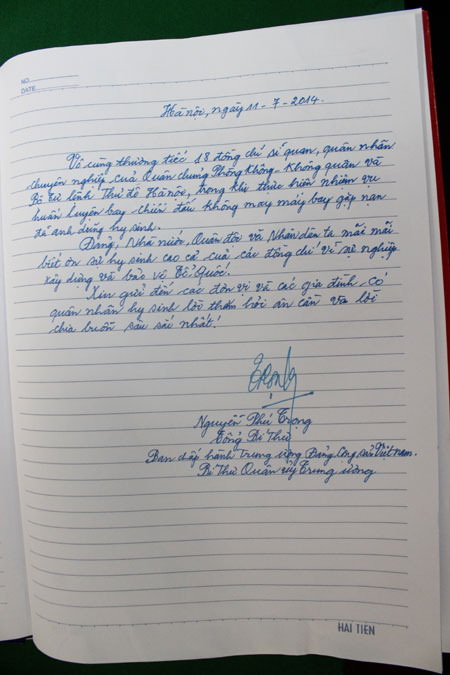 NO.
DATE
Hà nội, ngày 11 - 7 - 2014.
Vô cùng thương tiếc 18 đồng chí sĩ quan, quân nhân
chuyên nghiệp của Quân chủng Phòng không - Không quân và
Bộ Tư lệnh Thủ đô Hà Nội, trong khi thực hiện nhiệm vụ
huấn luyện bay chiến đấu không may máy bay gặp nạn
đã anh dũng hy sinh.
Đảng, Nhà nước, Quân đội và Nhân dân ta mãi mãi
biết ơn sự hy sinh cao cả của các đồng chí vì sự nghiệp
xây dựng và bảo vệ Tổ Quốc.
Xin gửi đến các đơn vị và các gia đình có
quân nhân hy sinh lời thăm hỏi ân cần và lời
chia buồn sâu sắc nhất!
Trọng
Nguyễn Phú Trọng
Tổng Bí Thư
Ban chấp hành Trung ương Đảng Cộng sản Việt Nam.
Bí Thư Quân ủy Trung ương
HẢI TIẾN